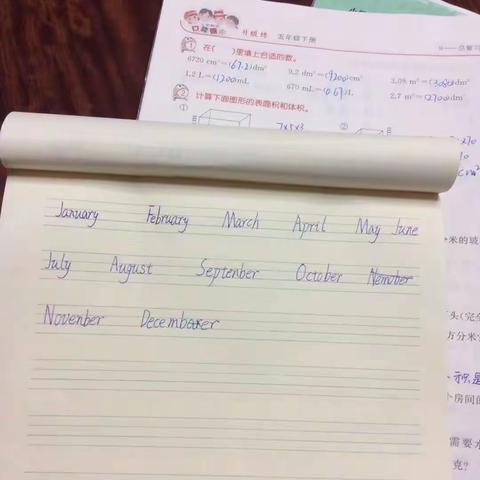 升级练 五年级下册
1 在( )里填上合适的数。
6720 cm³=(6.72)dm³ 9.2 dm³=(9200)cm³ 3.08 m³=(3080)dm³
1.2 L=(1200)mL 670 mL=(0.67)L 2.7 m³=(2700)dm³
2 计算下面图形的表面积和体积。
① 7×5×3 ②
January February March April May June
July August Septenber October Nemober
Novenber Decemboer
米的玻
头(完全
方分米
个房间的
需要水
克?